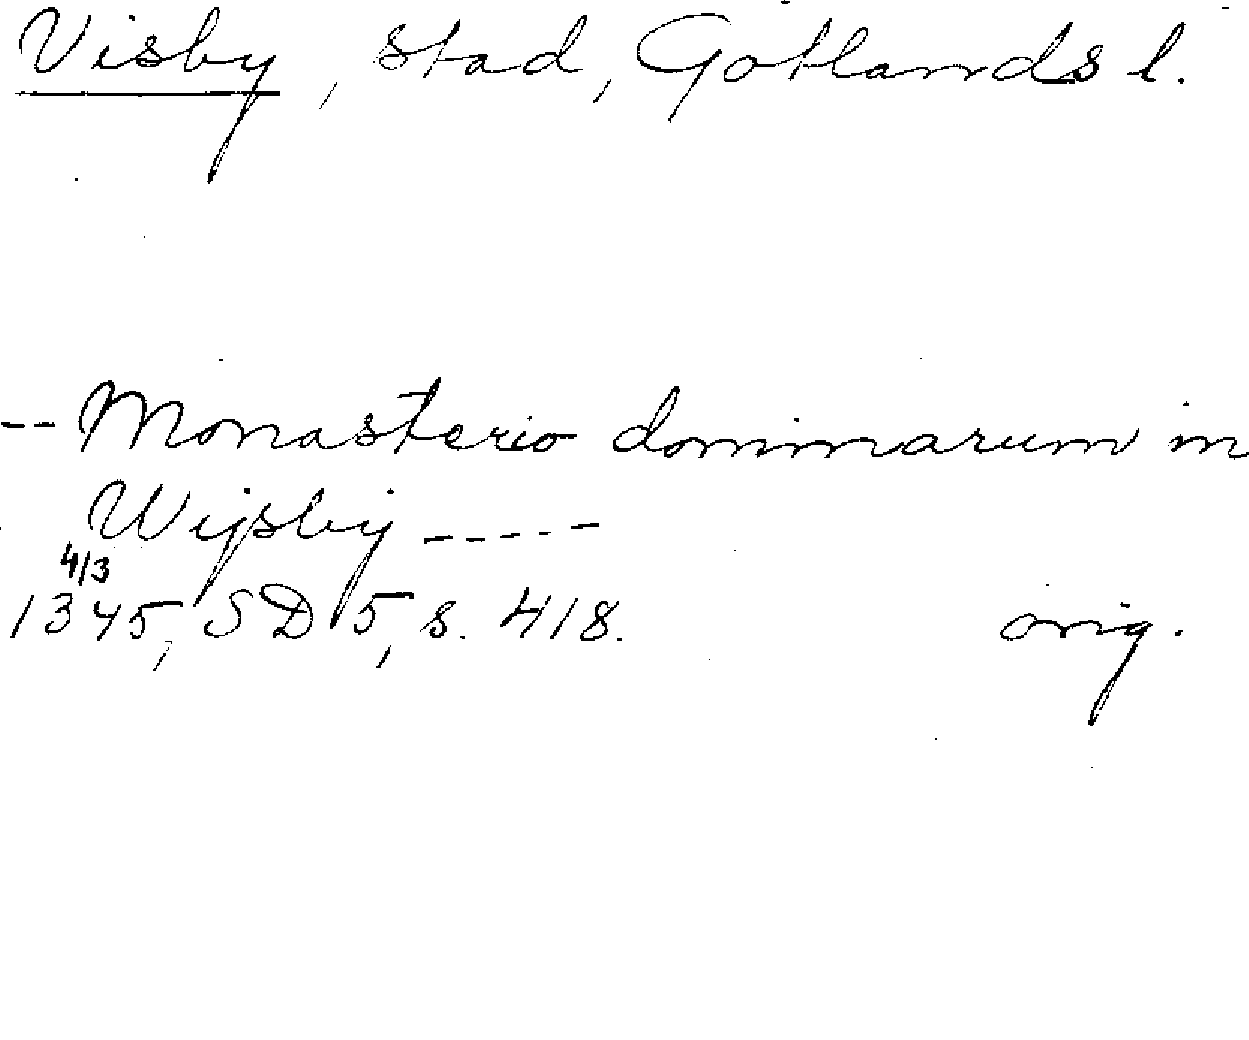 Visby, stad, Gotlands l.
-- Monasterio dominarum in
Wijsbij -----
4/3
1345, SD 5, s. 418. orig.